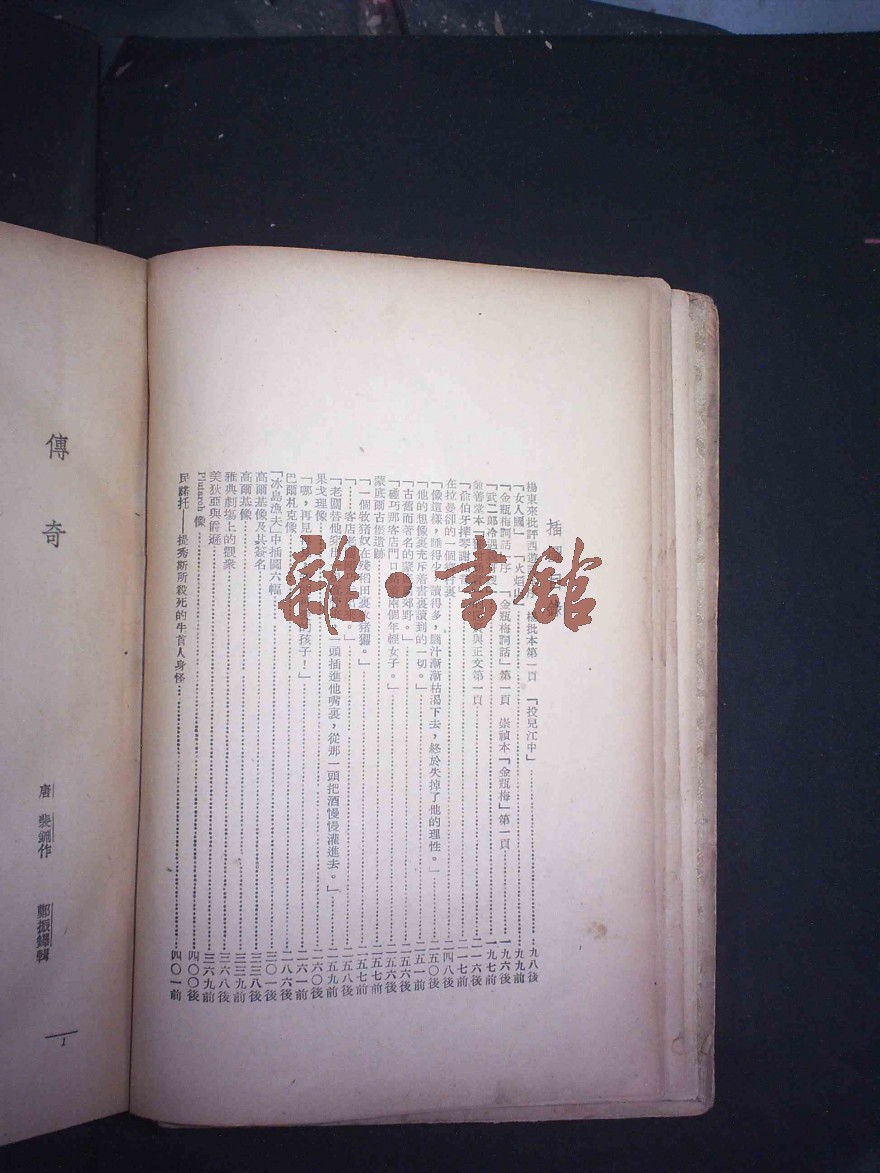 插
楊東來批評西 本第一頁 「投兒江中」 九八後
「女人國」 「火焰山」 九九前
「金瓶梅詞話」序 「金瓶梅詞話」第一頁 崇禎本「金瓶梅」第一頁 一九六後
「武二郎冷遇 一九七前
兼善堂本 與正文第一頁 二一六後
「俞伯牙摔琴謝 二一七前
在拉曼卻的一個 村裏 二四八後
「像這樣,睡得少 讀得多,腦汁漸漸枯渴下去,終於失掉了他的理性。」 二五〇後
「他的想像裏充斥着書裏讀到的一切。」 二五一前
「古舊而著名的蒙 郊野。」 二五六後
「碰巧那客店門口站 兩個年輕女子。」 二五六後
蒙底爾古堡遺跡 二五七前
「一個牧猪奴在殘稻田裏 猪玀。」 二五七前
「……客店老 二五八後
「老闆替他 一頭插進他嘴裏,從那一頭把酒慢慢灌進去。」 二五九前
果戈理像 二六〇後
「哪,再見 的孩子!」 二六一前
巴爾札克像 二八六後
「冰島漁夫」中插圖六幅 三〇一後
高爾基像及其簽名 三三八後
高爾基像 三三九前
雅典劇塲上的觀衆 三六八後
美狄亞與爵遜 三六九前
Plutarch 像 四〇〇後
民諾托——提秀斯所殺死的牛首人身怪 四〇一前
傳奇
唐 裴鉶作 鄭振鐸輯
1
雜·書館